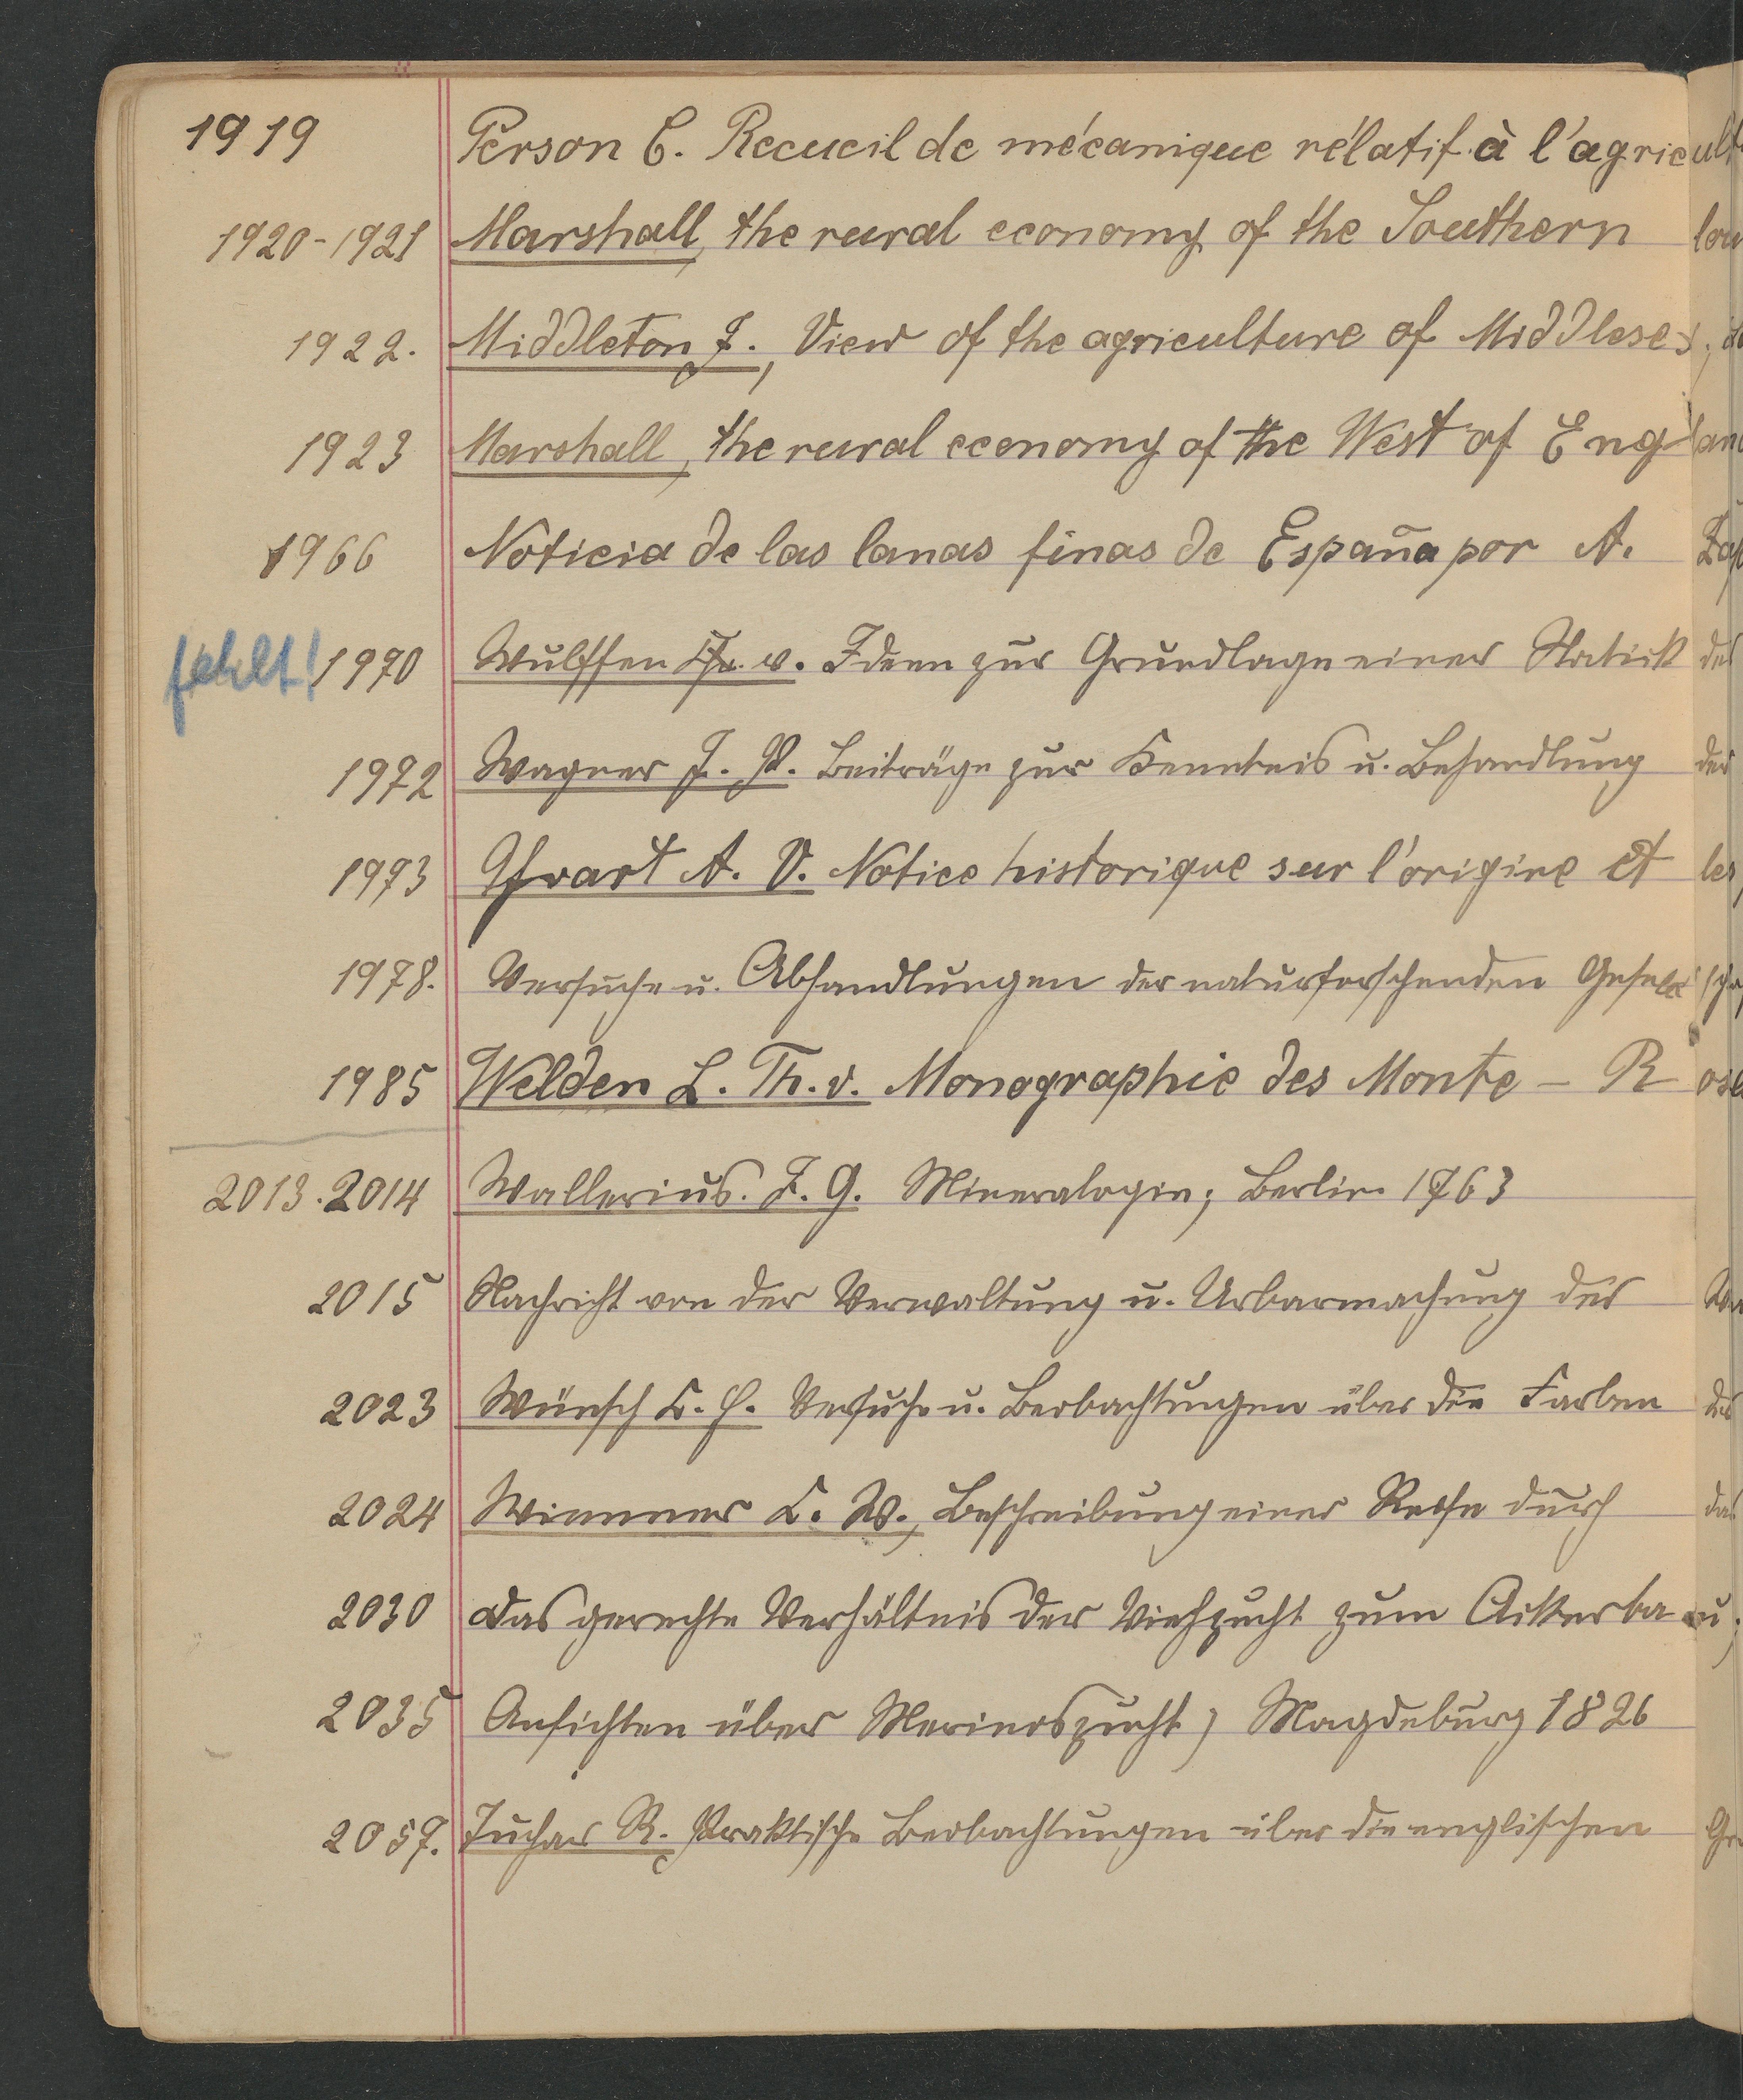 1919 Person C. Recueil de mécanique rélatif à l'agricult
1920-1921 Marshall, the rural economy of the Southern
1922. Middleton J., View of the agriculture of Middlesex,
1923 Marshall, the rural economy of the West of England
1966 Noticia de las lanas finas de España por A.
fehlt! 1970 Wulffen v. Ideen zur Grundlage einer Statick des
1972 Wagner J. P. Beiträge zur Kenntnis u. Behandlung der
1973 Yvart A. V. Notice historique sur l'origine et les
1978. Versuche u. Abhandlungen der naturforschenden Gesellschaf
1985 Welden L. Th. v. Monographie des Monte-Rosa
2013.2014 Wallerius. J. G. Mineralogie; Berlin 1763
2015 Nachricht von der Verwaltung u. Urbarmachung des
2023 Wünsch C. E. Versuche u. Beobachtungen über die Farben des
2024 Wimmer C. W., Beschreibung einer Reise durch das
2030 Das gerechte Verhältnis der Viehzucht zum Ackerbau;
2035 Ansichten über Merinoszucht; Magdeburg 1826
2057. R. Praktische Beobachtungen über die englischen